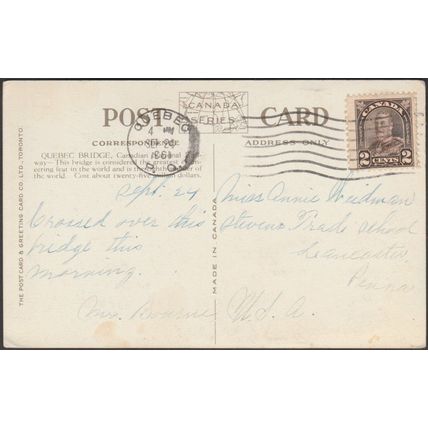 POST CARD
CANADA
SERIES
CORRESPONDENCE
ADDRESS ONLY
QUEBEC BRIDGE, Canadian
way—This bridge is considered the greatest
eering feat in the world and is the
of
the world. Cost about twenty-five dollars.
QUEBEC
4 PM
P.Q.
CANADA
2 CENTS 2
Sept. 24
Crossed over this
bridge this
morning.
Mr. Bourne
Miss Annie Weidman
Stevens Trade School
Lancaster,
Penna
U.S.A.
MADE IN CANADA
THE POST CARD & GREETING CARD CO. LTD., TORONTO.